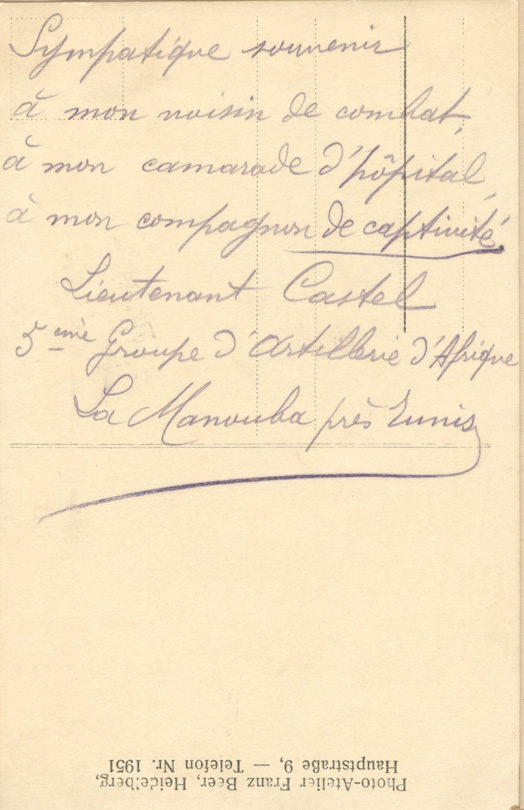 Sympatique souvenir
à mon voisin de combat,
à mon camarade d'hôpital,
à mon compagnon de captivité
Lieutenant Castel
5ème Groupe d'Artillerie d'Afrique
La Manouba près Tunis
Photo-Atelier Franz Beer, Heidelberg,
Hauptstraße 9, — Telefon Nr. 1951